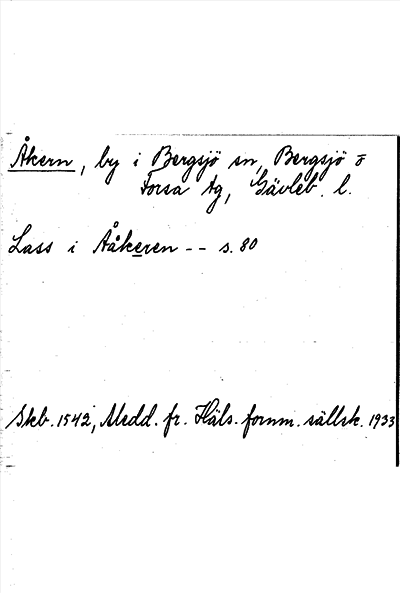 Åkern, by i Bergsjö sn, Bergsjö o
Forsa tg, Gävleb. l.
Lass i Aåkeren -- s. 80
Skb. 1542, Medd. fr. Häls. fornm. sällsk. 1933